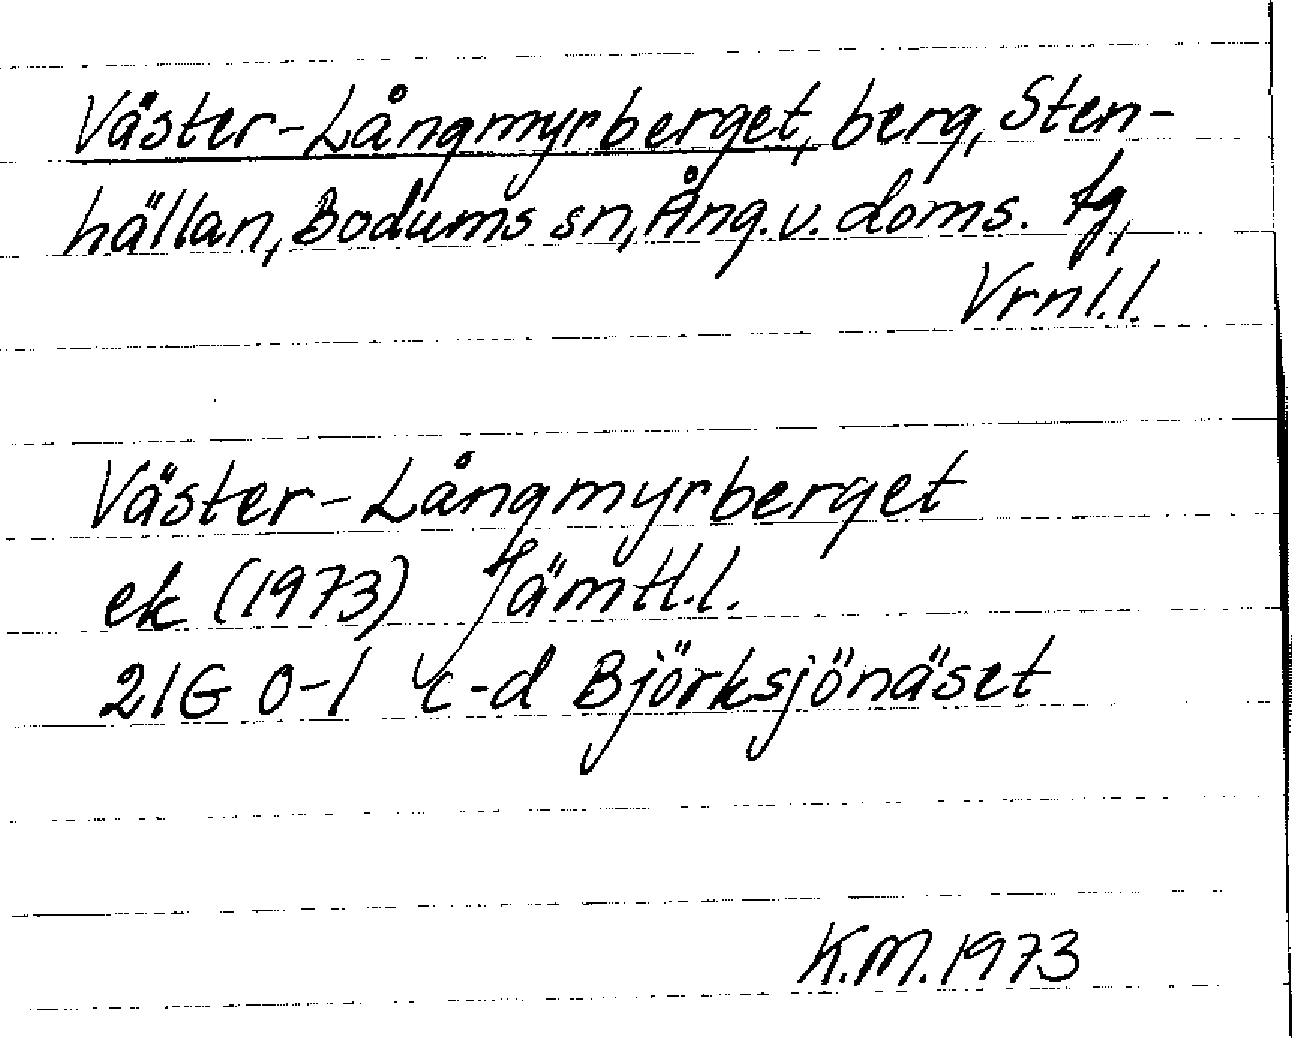 Väster-Långmyrberget, berg, Sten-
hällan, Bodums sn, Ång. v. doms. tg,
Vrnl. l.
Väster-Långmyrberget
ek (1973) Jämtl. l.
21G 0-1 c-d Björksjönäset
K.M. 1973